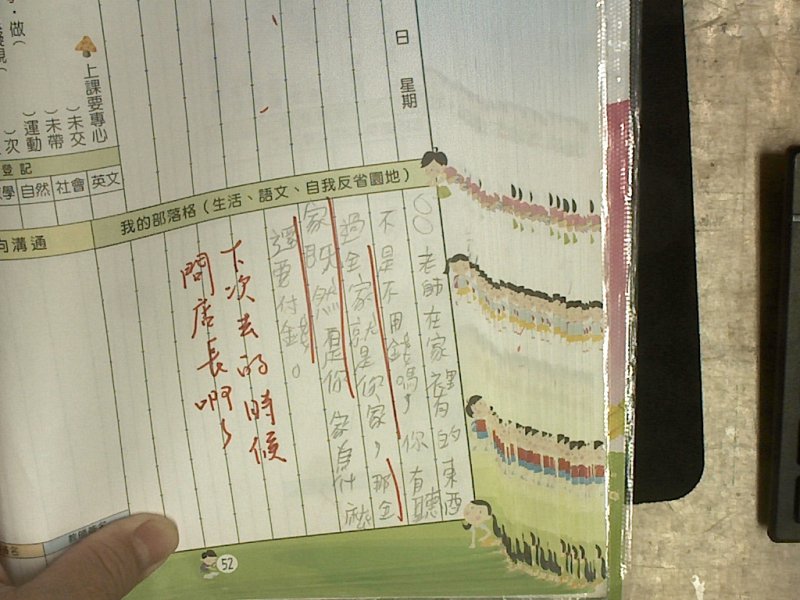 日 星期
上課要專心
)未交
)未帶
)運動
)次
登記
自然 社會 英文
我的部落格(生活、語文、自我反省園地)
○○老師在家裡的東西
不是不用錢嗎,你有聽
過全家就是你家,那全
家既然是你家為什麼
還要付錢。
下次去的時候
問店長啊!
向溝通
52